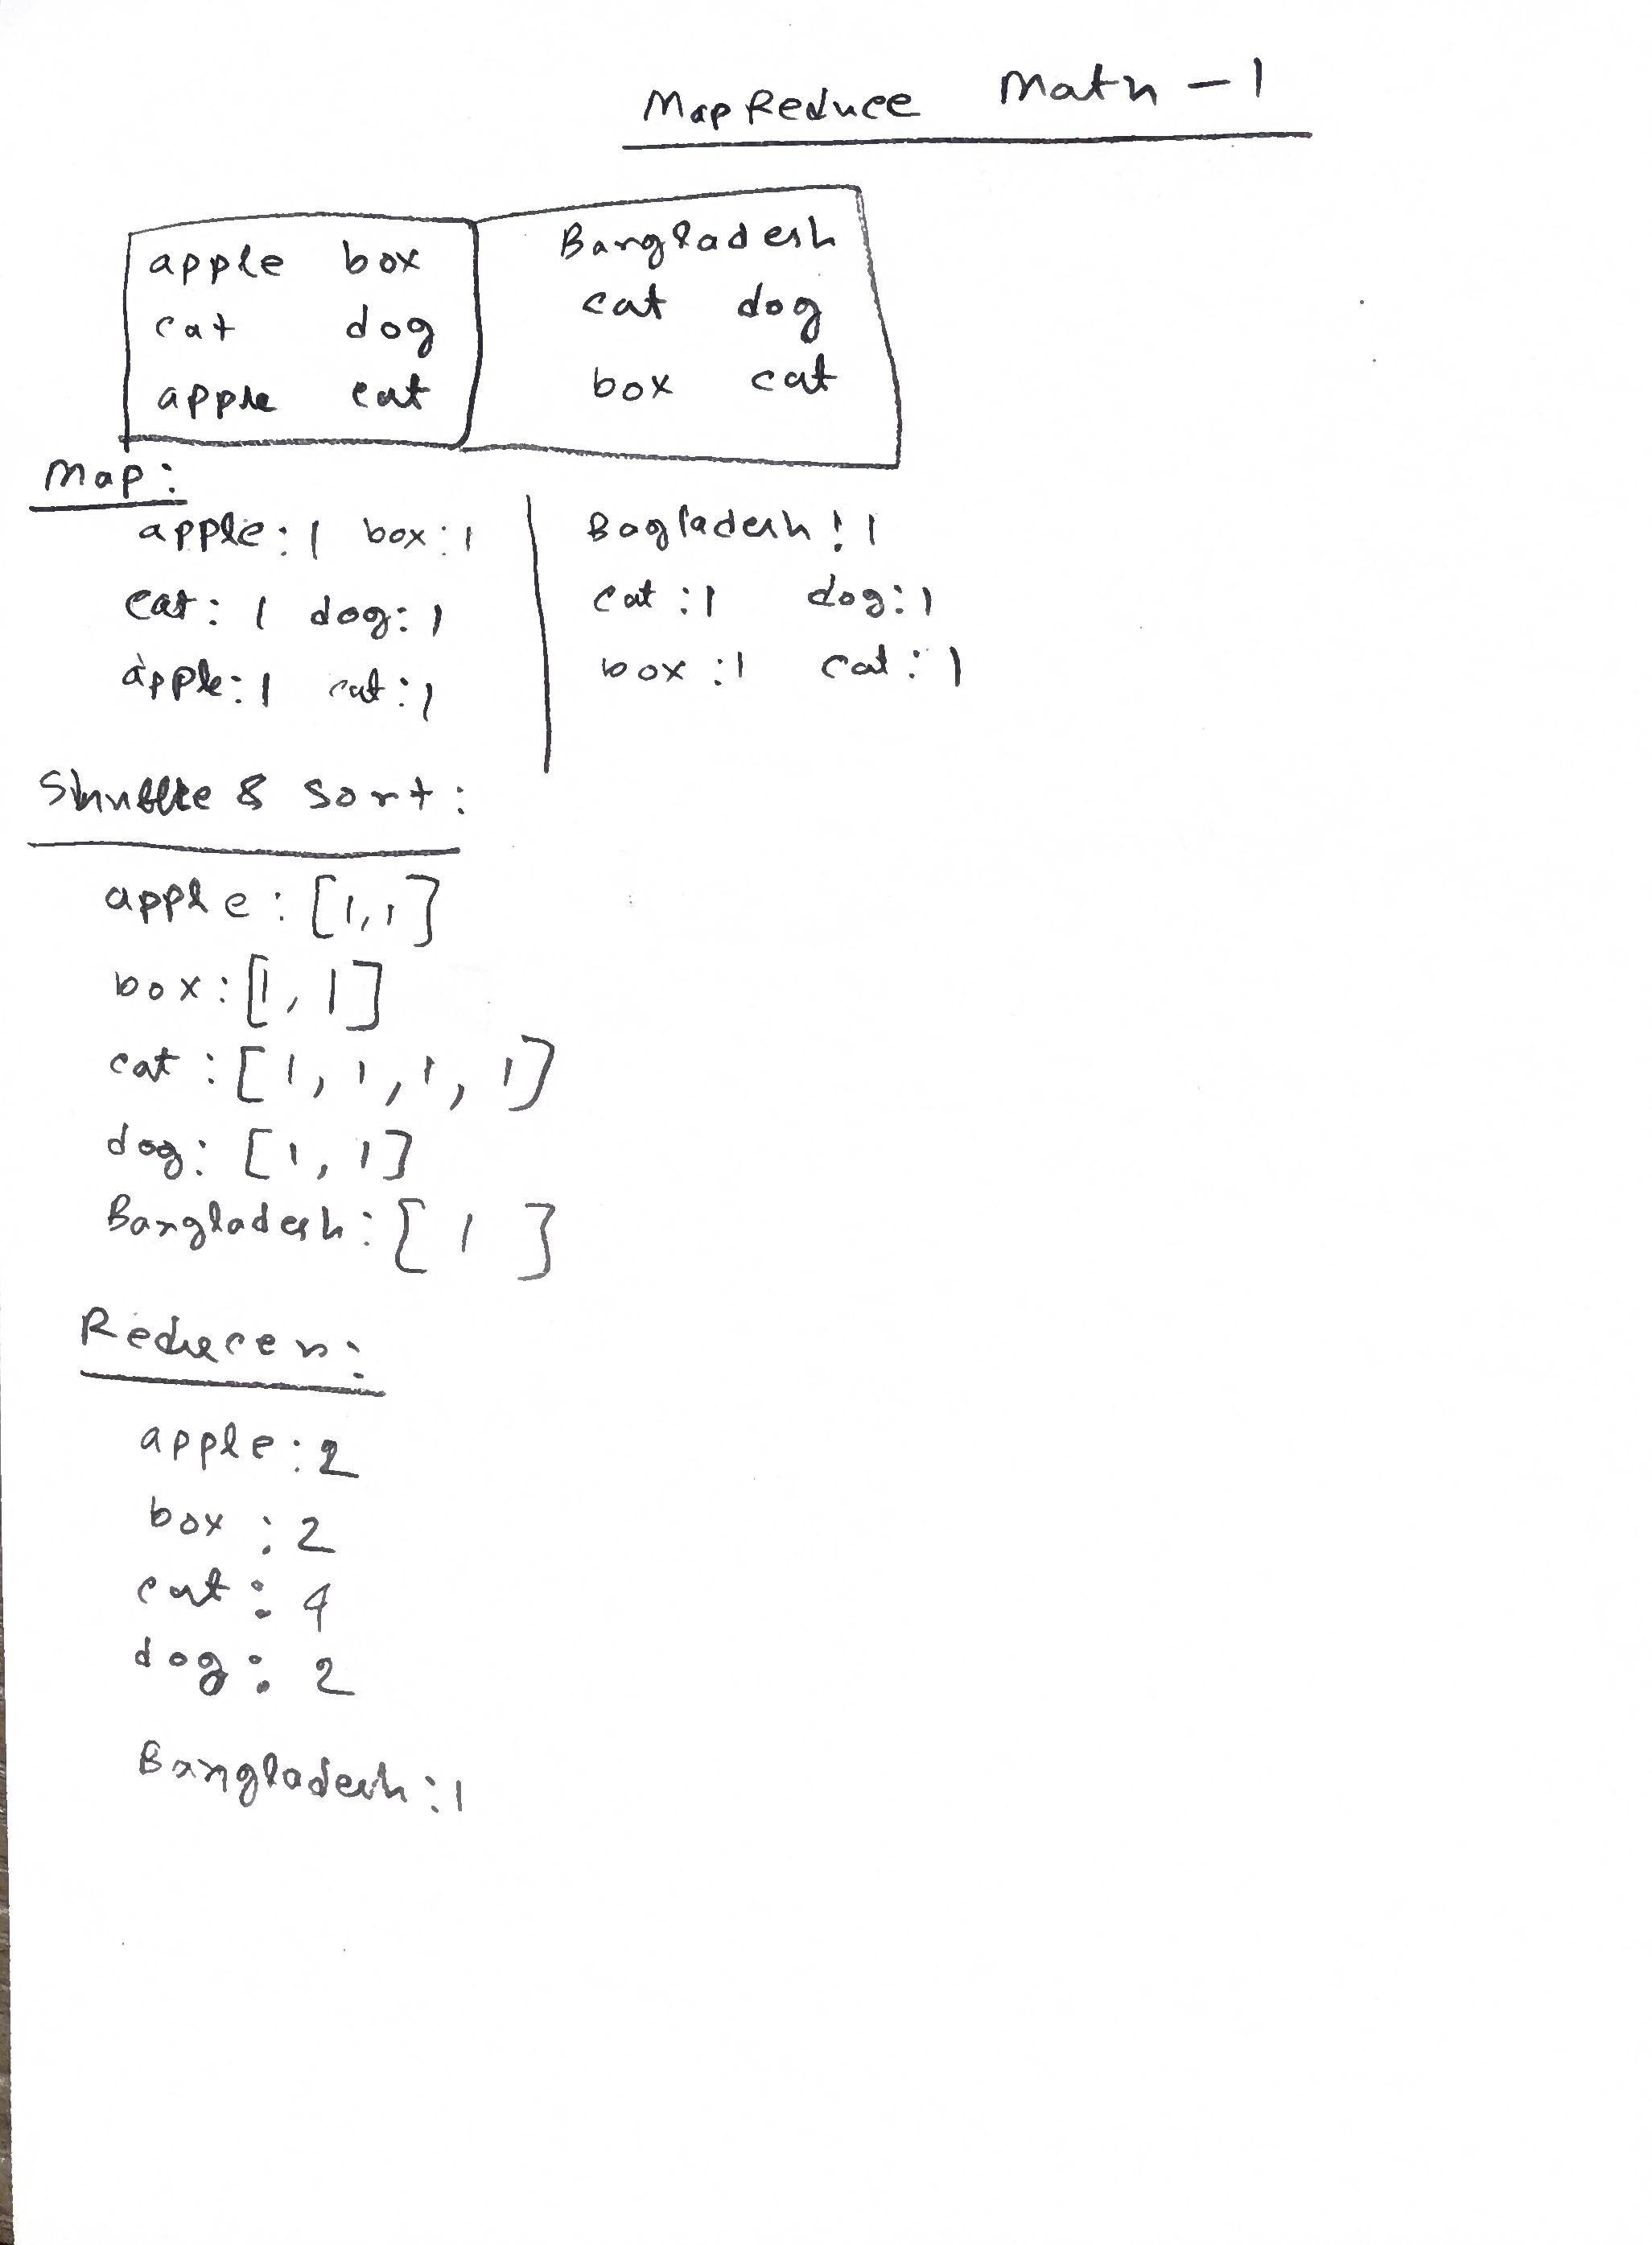 MapReduce Math - 1
apple box
cat dog
apple cat
Bangladesh
cat dog
box cat
Map:
apple: 1 box: 1
cat: 1 dog: 1
apple: 1 cat: 1
Bagladesh: 1
cat: 1 dog: 1
box: 1 cat: 1
Shuffle & Sort:
apple: [1, 1]
box: [1, 1]
cat: [1, 1, 1, 1]
dog: [1, 1]
Bangladesh: [1]
Reducer:
apple: 2
box: 2
cat: 4
dog: 2
Bangladesh: 1